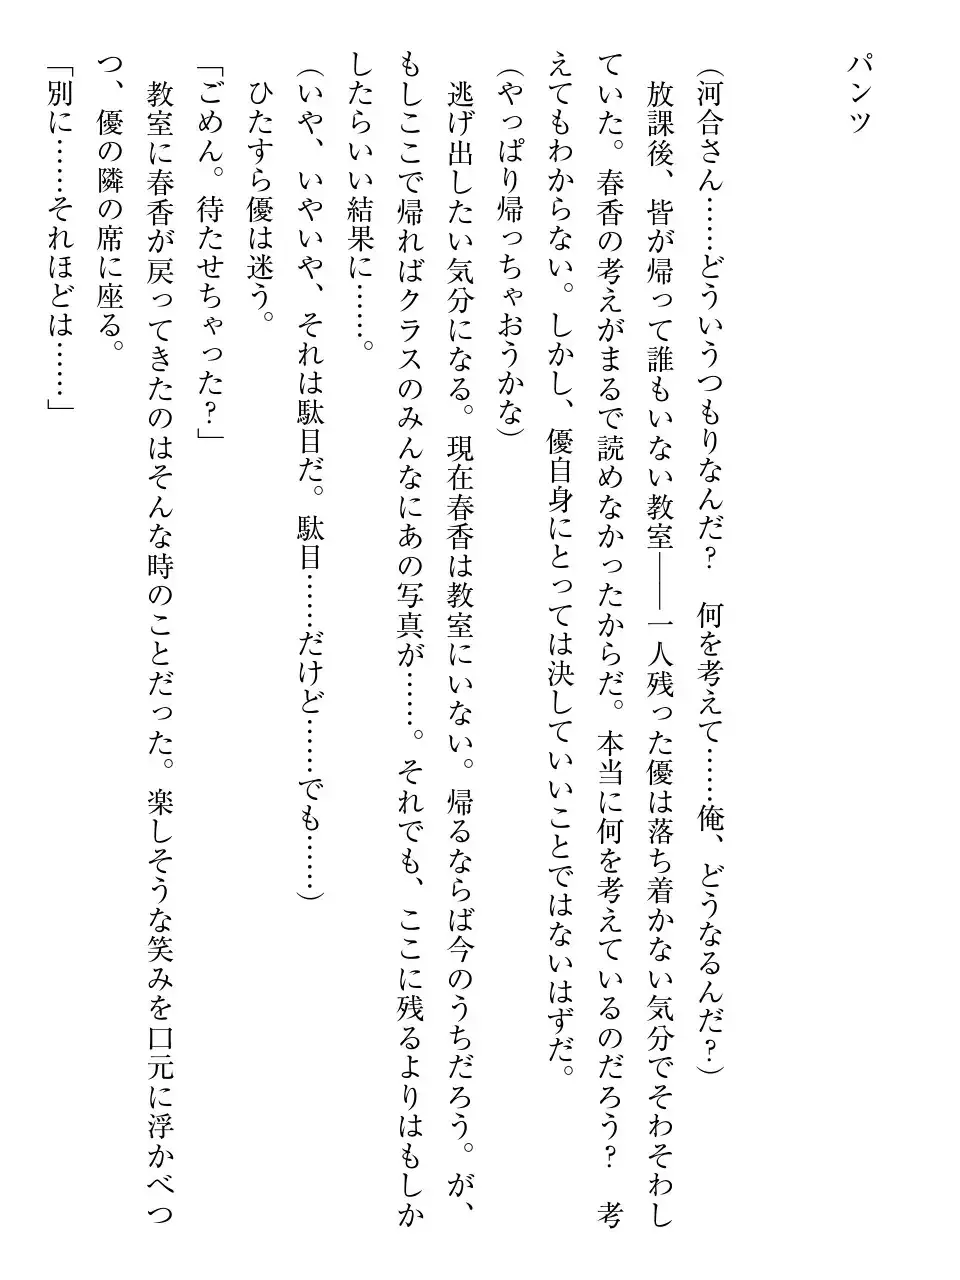 パンツ
(河合さん……どういうつもりなんだ?　何を考えて……俺、どうなるんだ?)
　放課後、皆が帰って誰もいない教室――一人残った優は落ち着かない気分でそわそわし
ていた。春香の考えがまるで読めなかったからだ。本当に何を考えているのだろう?　考
えてもわからない。しかし、優自身にとっては決していいことではないはずだ。
(やっぱり帰っちゃおうかな)
　逃げ出したい気分になる。現在春香は教室にいない。帰るならば今のうちだろう。が、
もしここで帰ればクラスのみんなにあの写真が……。それでも、ここに残るよりはもしか
したらいい結果に……。
(いや、いやいや、それは駄目だ。駄目……だけど……でも……)
　ひたすら優は迷う。
「ごめん。待たせちゃった?」
　教室に春香が戻ってきたのはそんな時のことだった。楽しそうな笑みを口元に浮かべつ
つ、優の隣の席に座る。
「別に……それほどは……」